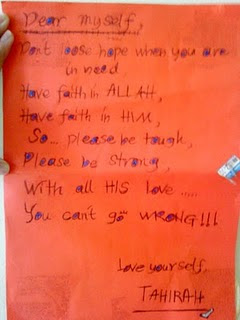 Dear myself,
Dont loose hope when you are
in need
Have faith in ALLAH,
Have faith in HIM,
So... please be tough,
Please be strong,
With all HIS love .....
You can't go WRONG!!!
Love yourself,
TAHIRAH